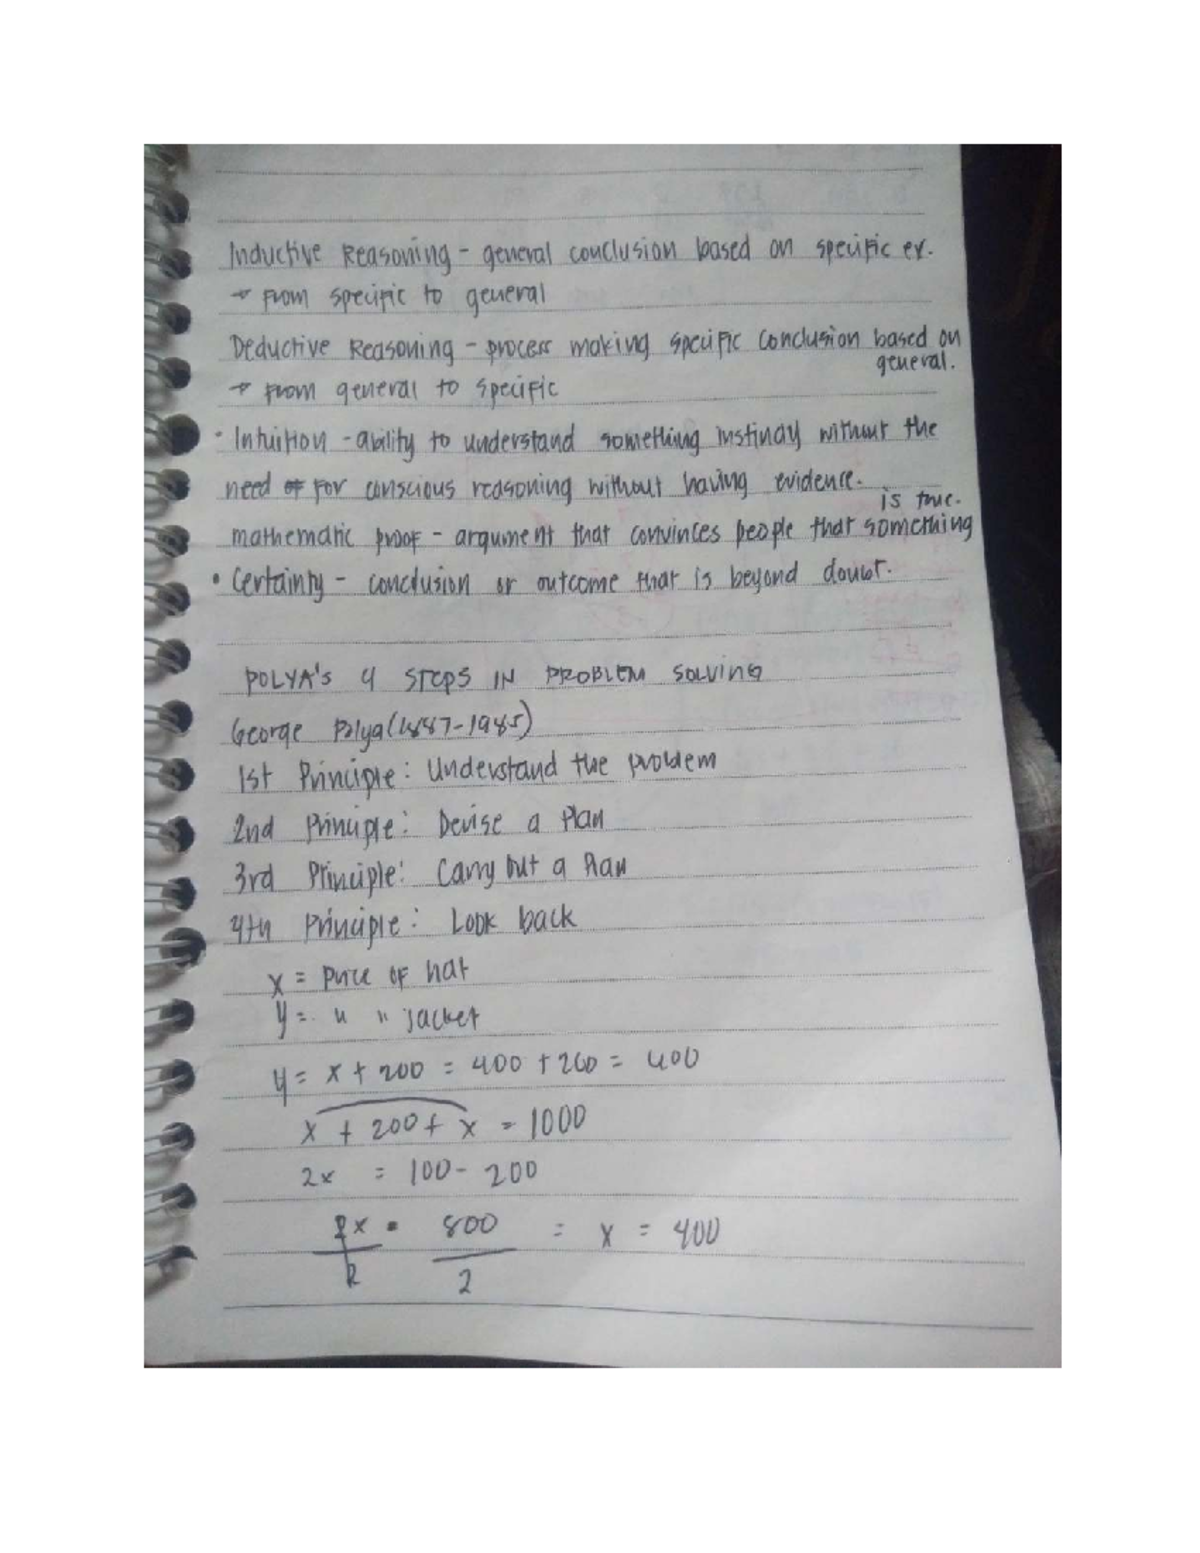 Inductive Reasoning - general conclusion based on specific ex.
→ From specific to general
Deductive Reasoning - process making specific conclusion based on general.
→ From general to specific
• Intuition - ability to understand something instinctly without the
need of for conscious reasoning without having evidence.
mathematic proof - argument that convinces people that something is true.
• Certainty - conclusion or outcome that is beyond doubt.
POLYA's 4 STEPS IN PROBLEM SOLVING
George Polya (1887-1985)
1st Principle: Understand the problem
2nd Principle: Devise a Plan
3rd Principle: Carry Out a Plan
4th Principle: Look back
x = price of hat
y = " " jacket
y = x + 200 = 400 + 200 = 400
x + 200 + x = 1000
2x = 100 - 200
2x = 800 = x = 400
2 2